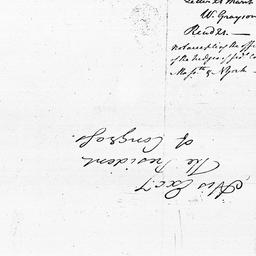 Letter 21 March
W. Grayson
Read
not accept of the offi
of the Judges of fed. Co
Mass.tts & N York
His Excy
The President
of Congress.